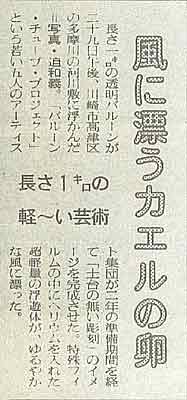 風に漂うカエルの卵
長さ1㌔の
軽〜い芸術
長さ一㌔の透明バルーンが
二十九日午後、川崎市高津区
の多摩川の河川敷に浮かんだ
＝写真・迫和義。「バルーン
・チューブ・プロジェクト」
という若い五人のアーティス
ト集団が二年の準備期間を経
て「土台の無い彫刻」のイメ
ージを完成させた。特殊フィ
ルムの中にヘリウムを入れた
超軽量の浮遊体が、ゆるやか
な風に漂った。